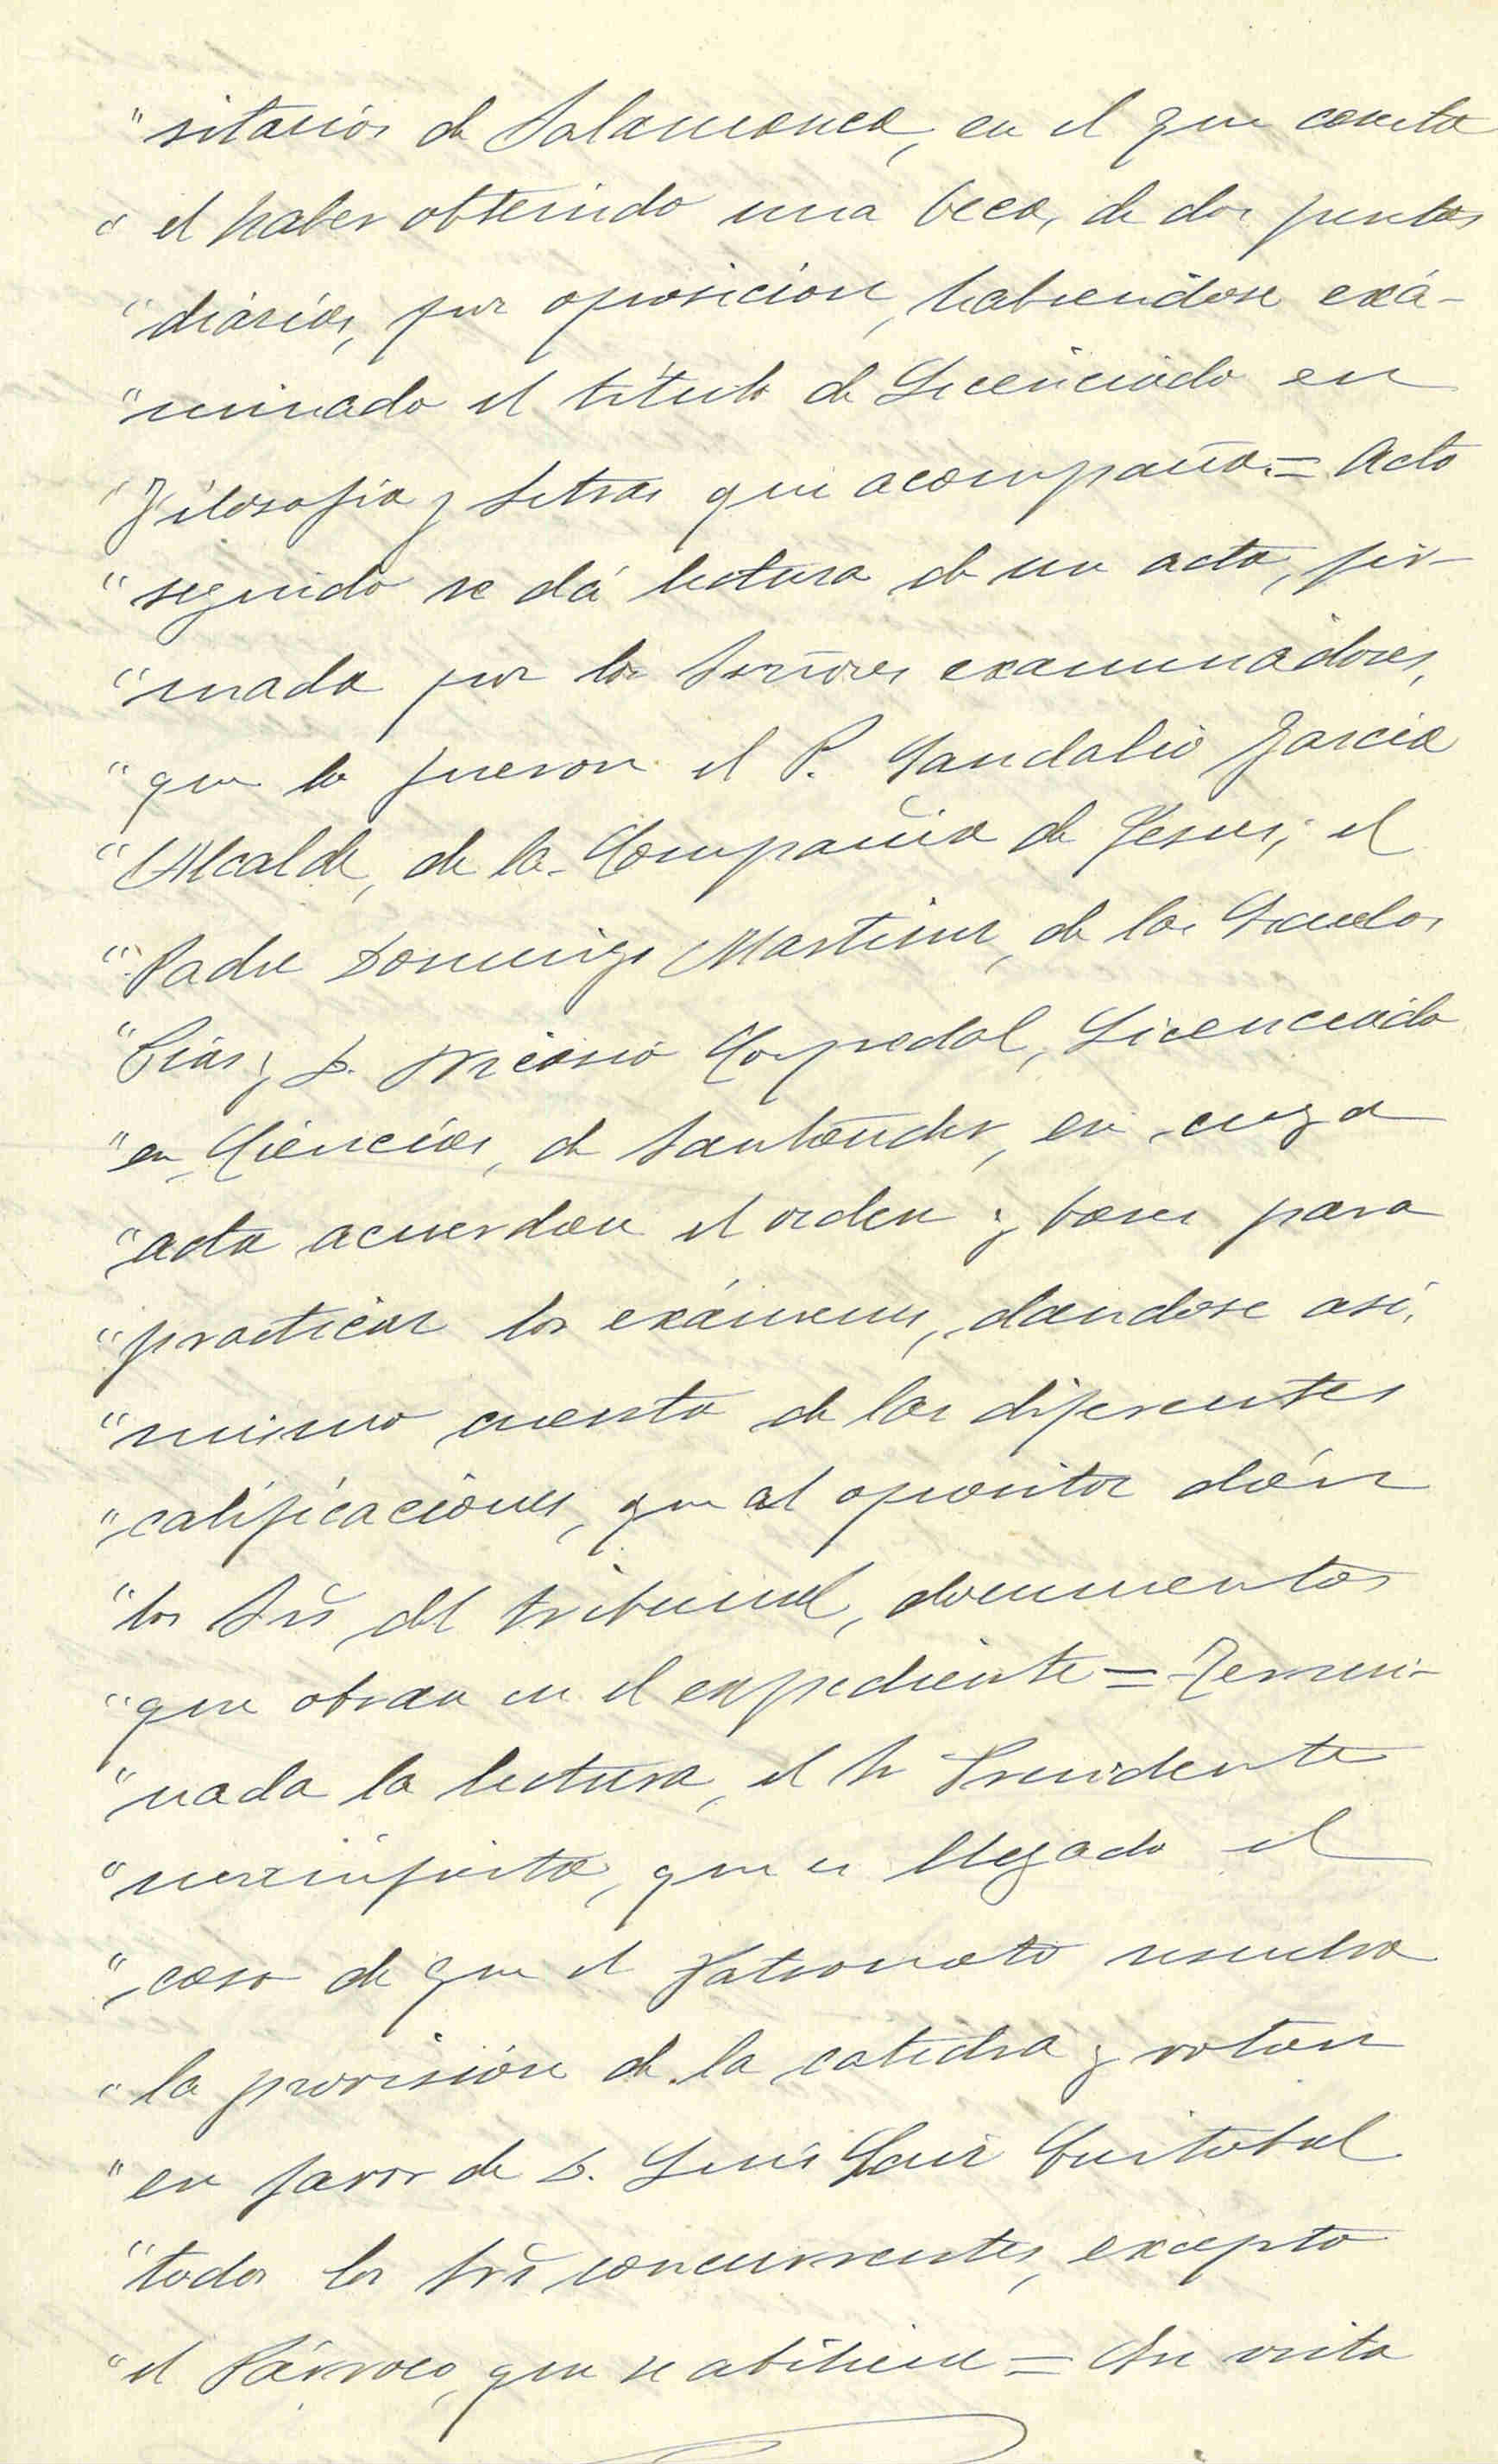 "sitarios de Salamanca, en el que consta
"el haber obtenido una beca, de dos pesetas
"diarias, por oposicion, habiendose exá-
"minado el título de Licenciado en
"Filosofia y Letras que acompaña.= Acto
"seguido se dá lectura de un acta, fir-
"mada por los Señores examinadores,
"que lo fueron el P. Gandalio Garcia
"Alcalde, de la Compañia de Jesus; el
"Padre Domingo Martinez, de los Escuelas
"Pias y D. Nicasio Hospedal, Licenciado
"en Ciencias, de Santander, en cuya
"acta acuerdan el orden y bases para
"practicar los exámenes, dandose asi,
"mismo cuenta de las diferentes
"calificaciones, que al opositor dán
"los Srs del tribunal, documentos
"que obran en el expediente = Termi-
"nada la lectura, el Sr Presidente
"manifiesta, que es llegado el
"caso de que el Patronato resuelva
"la provisión de la catedra y votan
"en favor de D. Luis Saiz Cristobal
"todos los Srs concurrentes, excepto
"el Párroco, que se abstiene = En vista